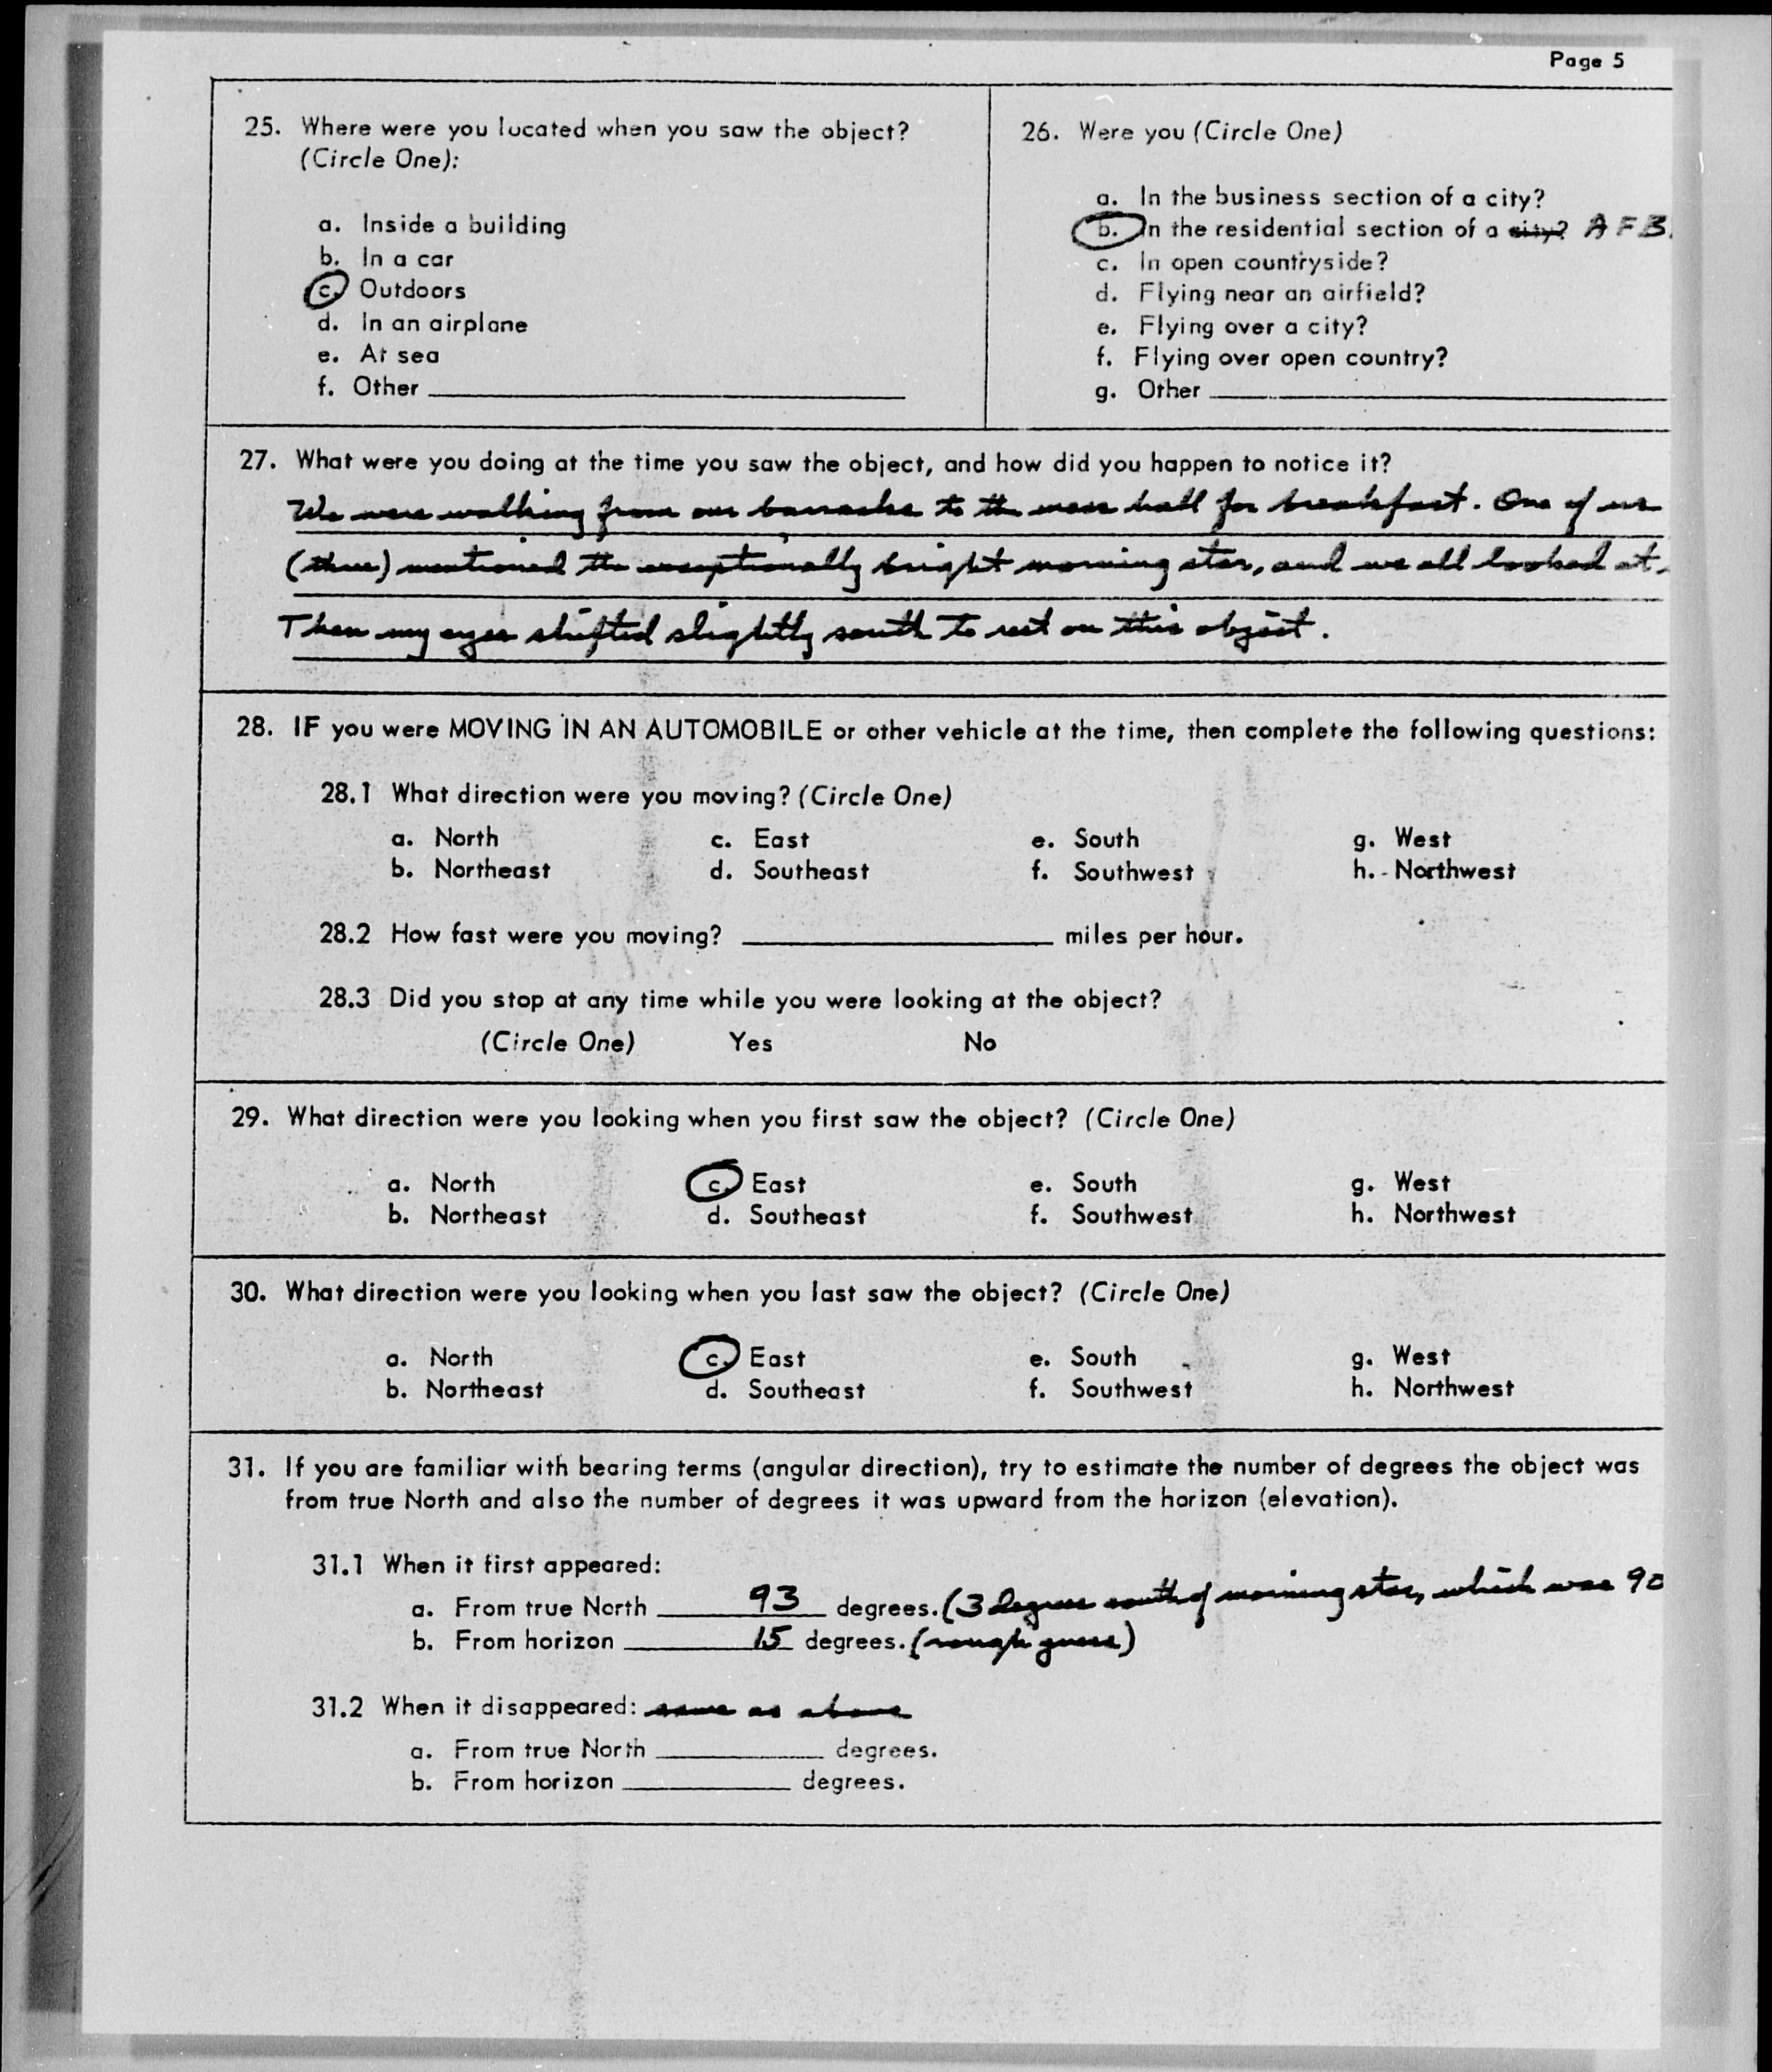 Page 5
25. Where were you located when you saw the object?
(Circle One):
a. Inside a building
b. In a car
c. Outdoors
d. In an airplane
e. At sea
f. Other
26. Were you (Circle One)
a. In the business section of a city?
b. In the residential section of a city? AFB.
c. In open countryside?
d. Flying near an airfield?
e. Flying over a city?
f. Flying over open country?
g. Other
27. What were you doing at the time you saw the object, and how did you happen to notice it?
We were walking from our barracks to the mess hall for breakfast. One of us
(three) mentioned the exceptionally bright morning star, and we all looked at
Then my eyes shifted slightly south to rest on this object.
28. IF you were MOVING IN AN AUTOMOBILE or other vehicle at the time, then complete the following questions:
28.1 What direction were you moving? (Circle One)
a. North c. East e. South g. West
b. Northeast d. Southeast f. Southwest h. Northwest
28.2 How fast were you moving? miles per hour.
28.3 Did you stop at any time while you were looking at the object?
(Circle One) Yes No
29. What direction were you looking when you first saw the object? (Circle One)
a. North c. East e. South g. West
b. Northeast d. Southeast f. Southwest h. Northwest
30. What direction were you looking when you last saw the object? (Circle One)
a. North c. East e. South g. West
b. Northeast d. Southeast f. Southwest h. Northwest
31. If you are familiar with bearing terms (angular direction), try to estimate the number of degrees the object was
from true North and also the number of degrees it was upward from the horizon (elevation).
31.1 When it first appeared:
a. From true North 93 degrees. (3 degrees south of morning star, which was 90
b. From horizon 15 degrees. (rough guess)
31.2 When it disappeared: same as above
a. From true North degrees.
b. From horizon degrees.